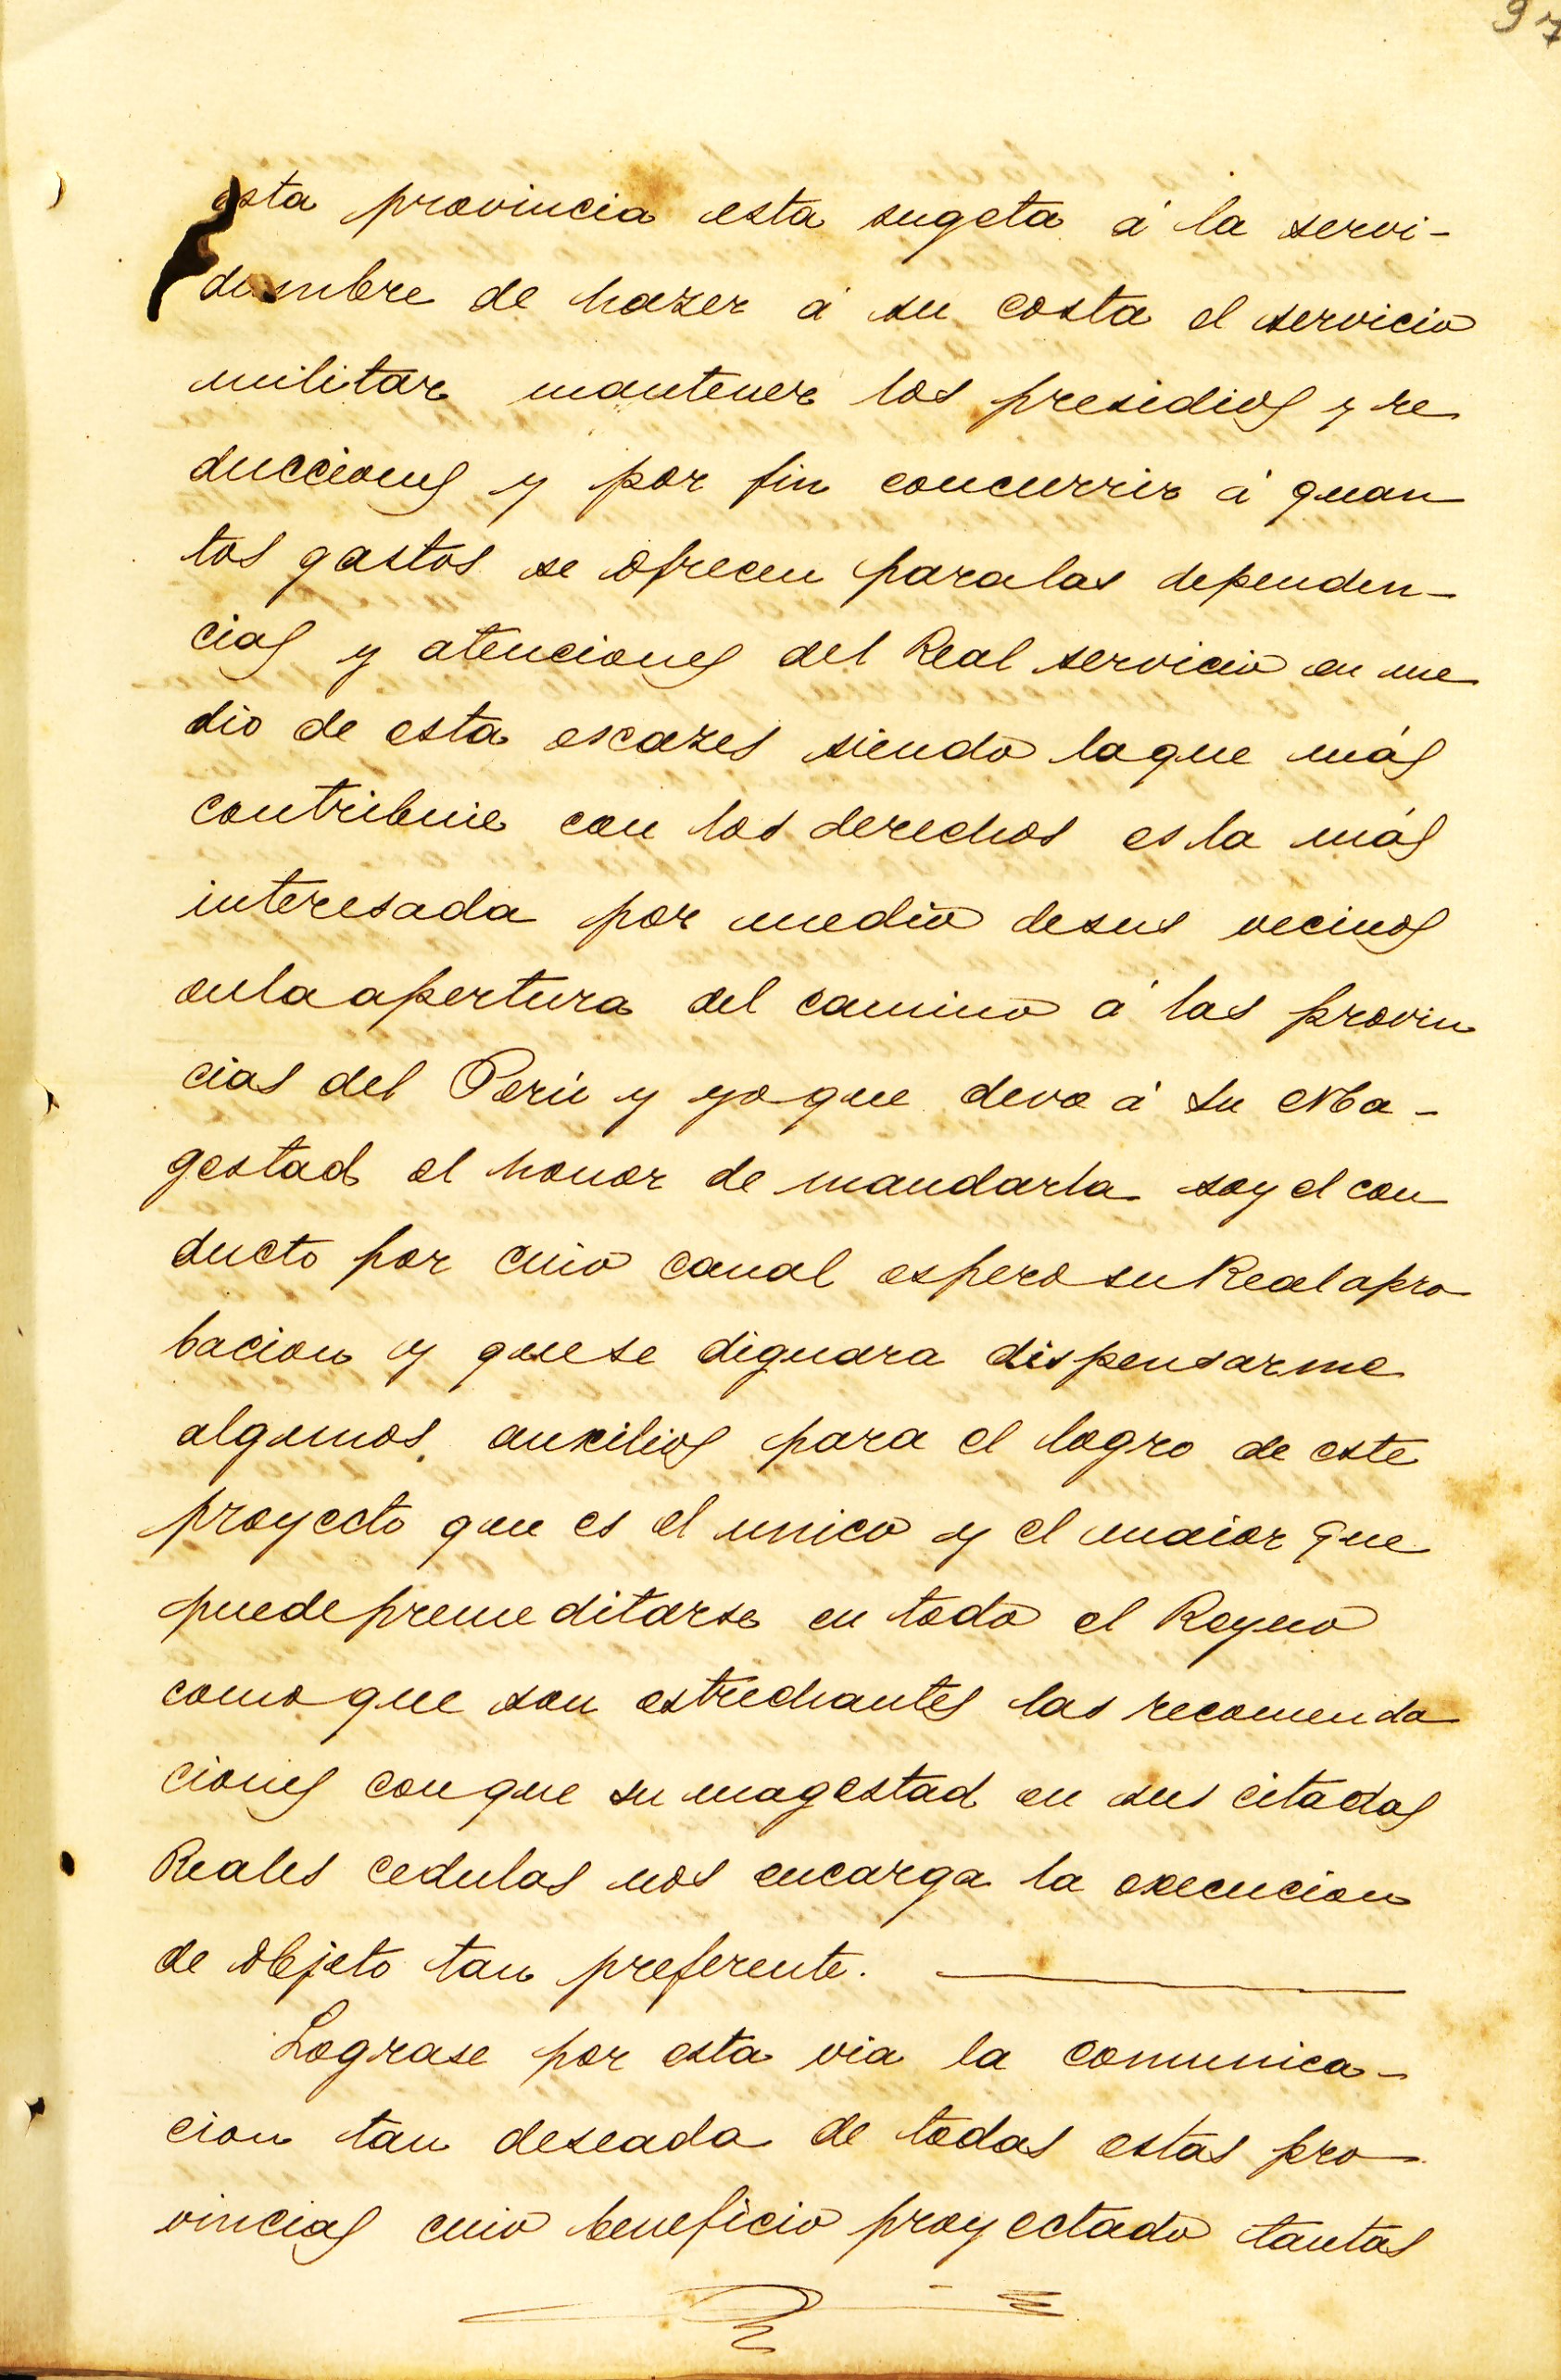 97
esta provincia esta sugeta á la servi-
dumbre de hazer á su costa el servicio
militar mantener los presidios y re
ducciones y por fin concurrir á quan
tos gastos se ofrecen paralas dependen-
cias y atenciones del Real servicio en me
dio de esta escazes siendo laque más
contribuie con los derechos es la más
interesada por medio desus vecinos
enla apertura del camino á las provin
cias del Perú y yo que devo á su Ma-
gestad el honor de mandarla soy el con
ducto por cuio canal espero su Real apro
bacion y quese dignara dispensarme
algunos auxilios para el logro de este
proyecto que es el unico y el maior que
puede premeditarse en todo el Reyno
como que son estrechantes las recomenda
ciones con que su magestad en sus citadas
Reales cedulas nos encarga la execucion
de objeto tan preferente.
Lograse por esta via la comunica-
cion tan deseada de todas estas pro
vincias cuio beneficio proyectado tantas